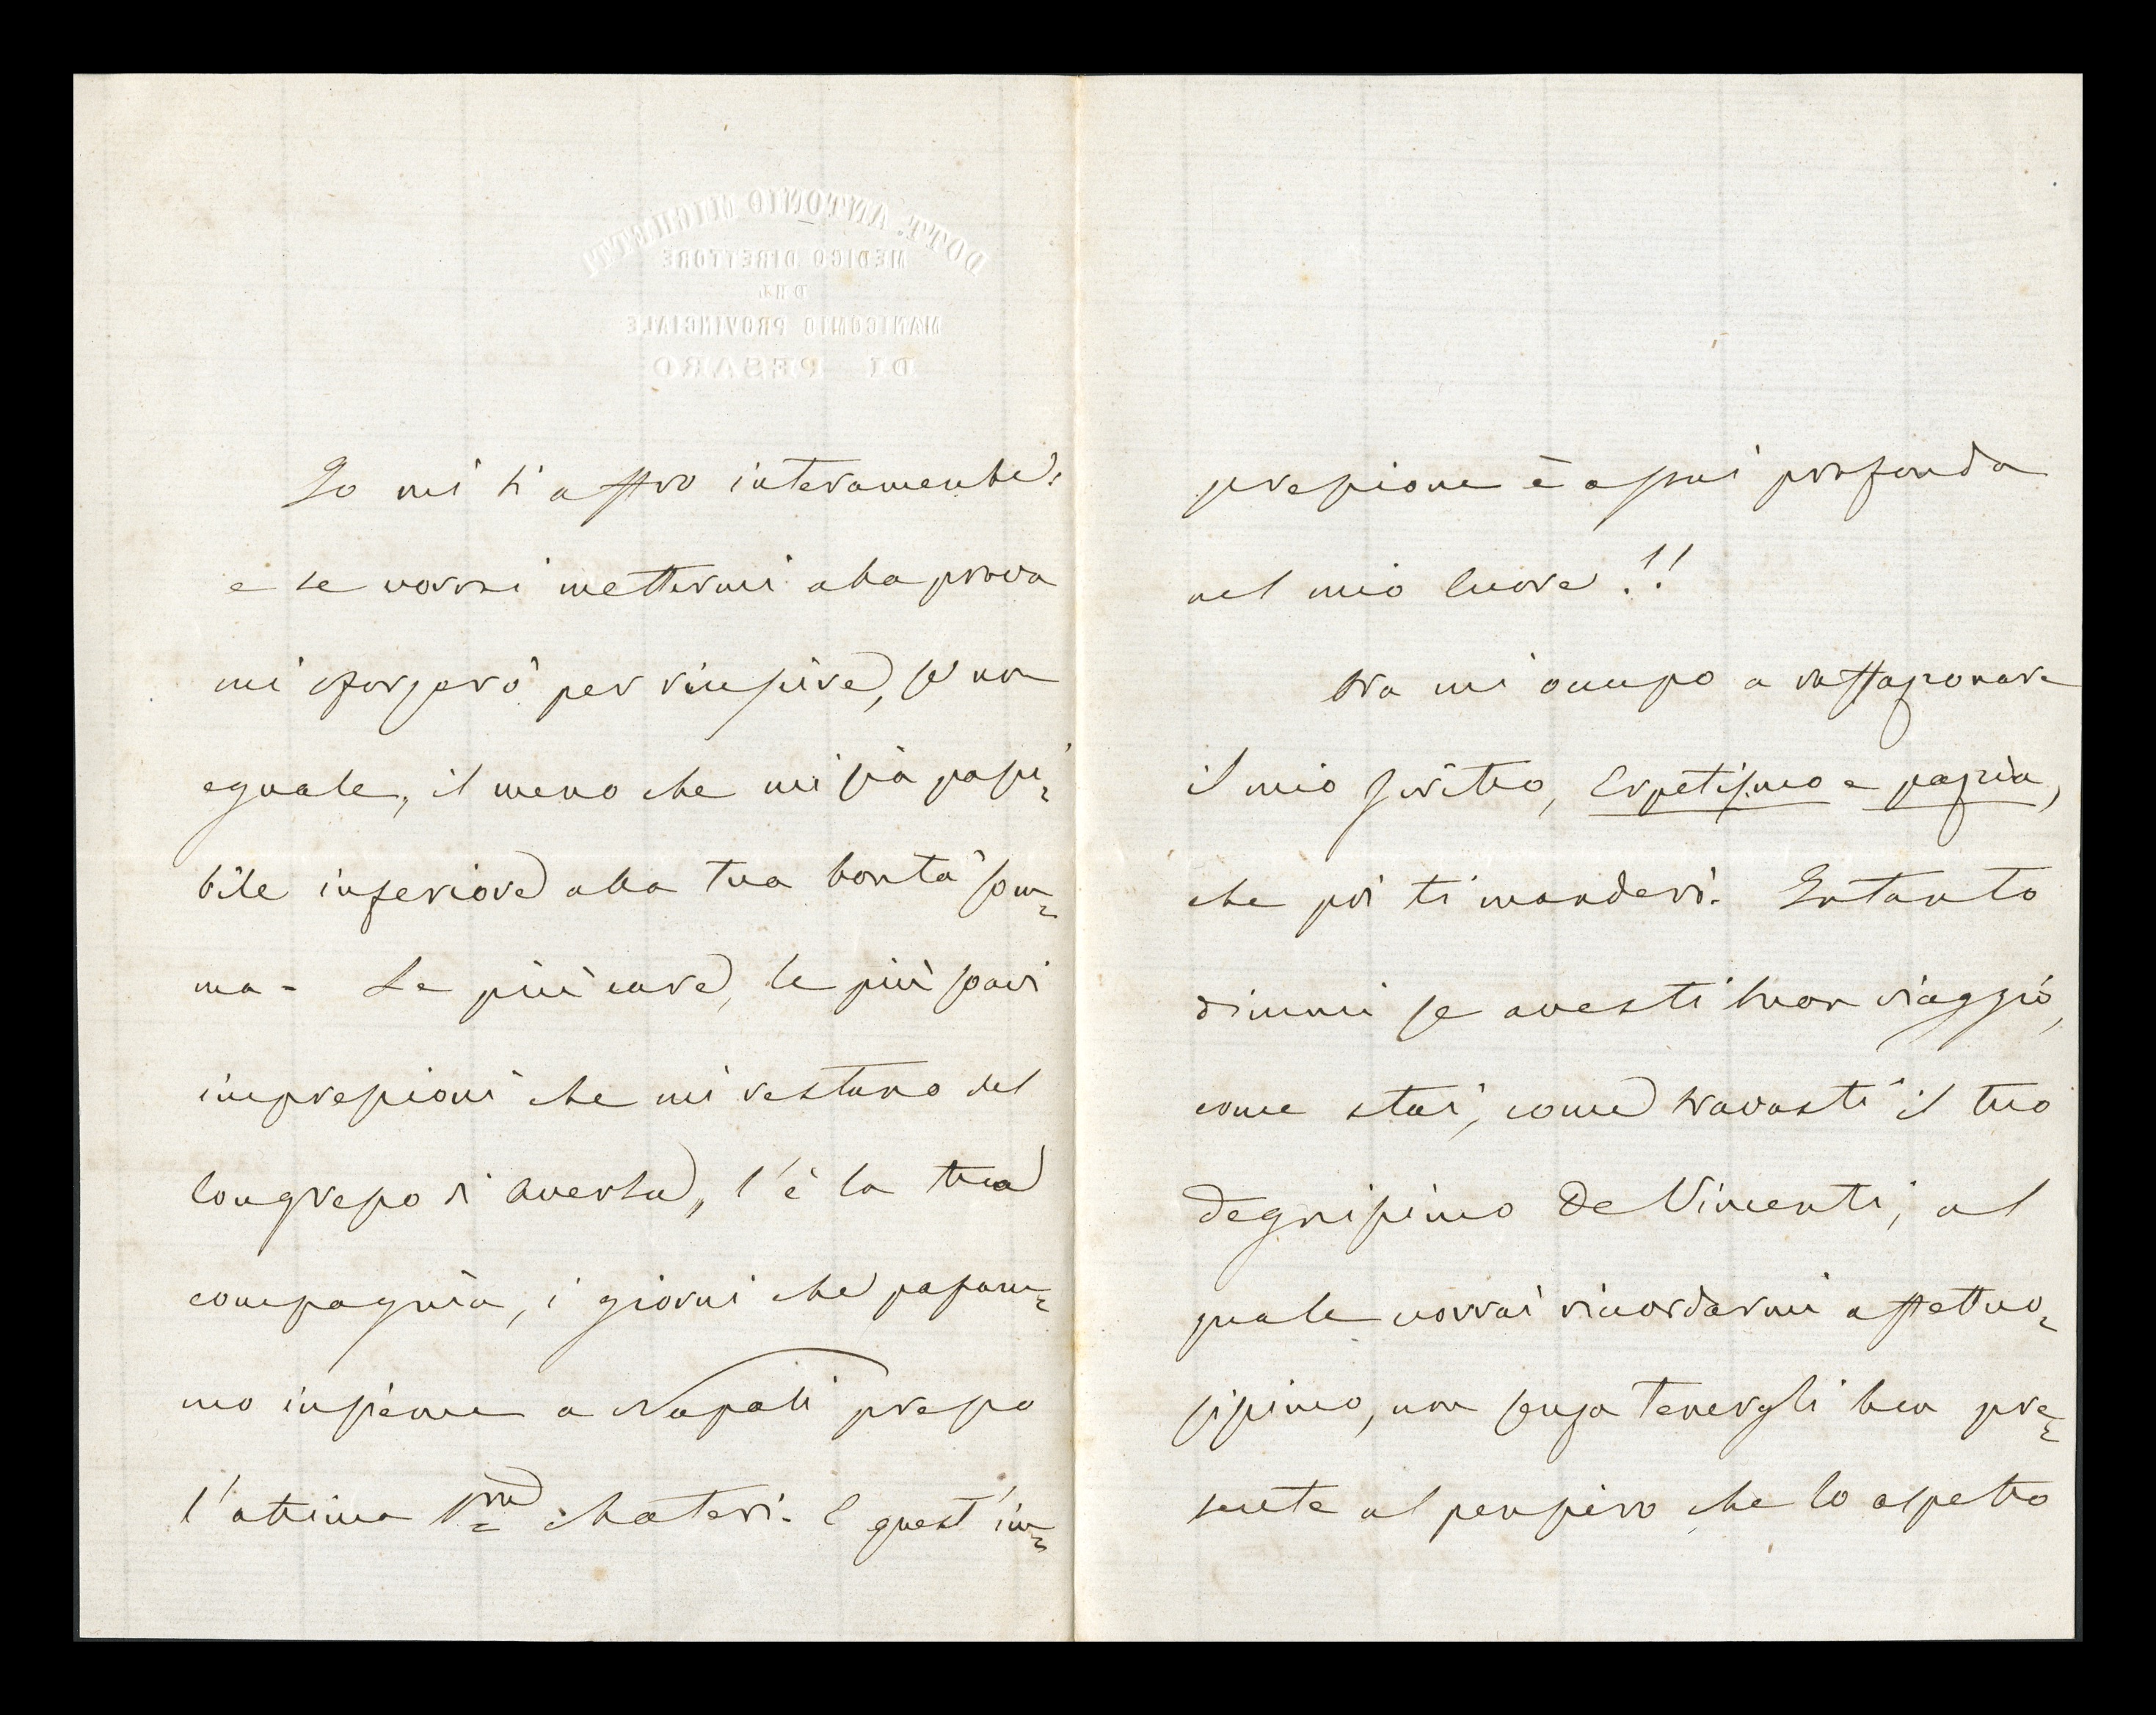 DOTT. ANTONIO MICHETTI
MEDICO DIRETTORE
DEL
MANICOMIO PROVINCIALE
DI PESARO
Io mi t'offro interamente:
e se vorrai mettermi alla prova
mi sforzerò per riuscire, se non
eguale, il meno che mi sia possi=
bile inferiore alla tua bontà som=
ma - Le più care, le più soavi
impressioni che mi restano del
Congresso di Aversa, l'è la tua
compagnia, i giorni che passam=
mo insieme a Napoli presso
l'ottima Sra Chateri. E quest'im=
pressione è assai profonda
nel mio Cuore!!
Ora mi occupo a raffazonare
il mio scritto, Erpetismo e pazzia,
che poi ti manderò. Intanto
dimmi se avesti buon viaggio,
come stai, come trovasti il tuo
degnissimo De Vincenti, al
quale vorrai ricordarmi affettuo=
sissimo, non senza tenergli ben pre=
sente al pensiero che lo aspetto